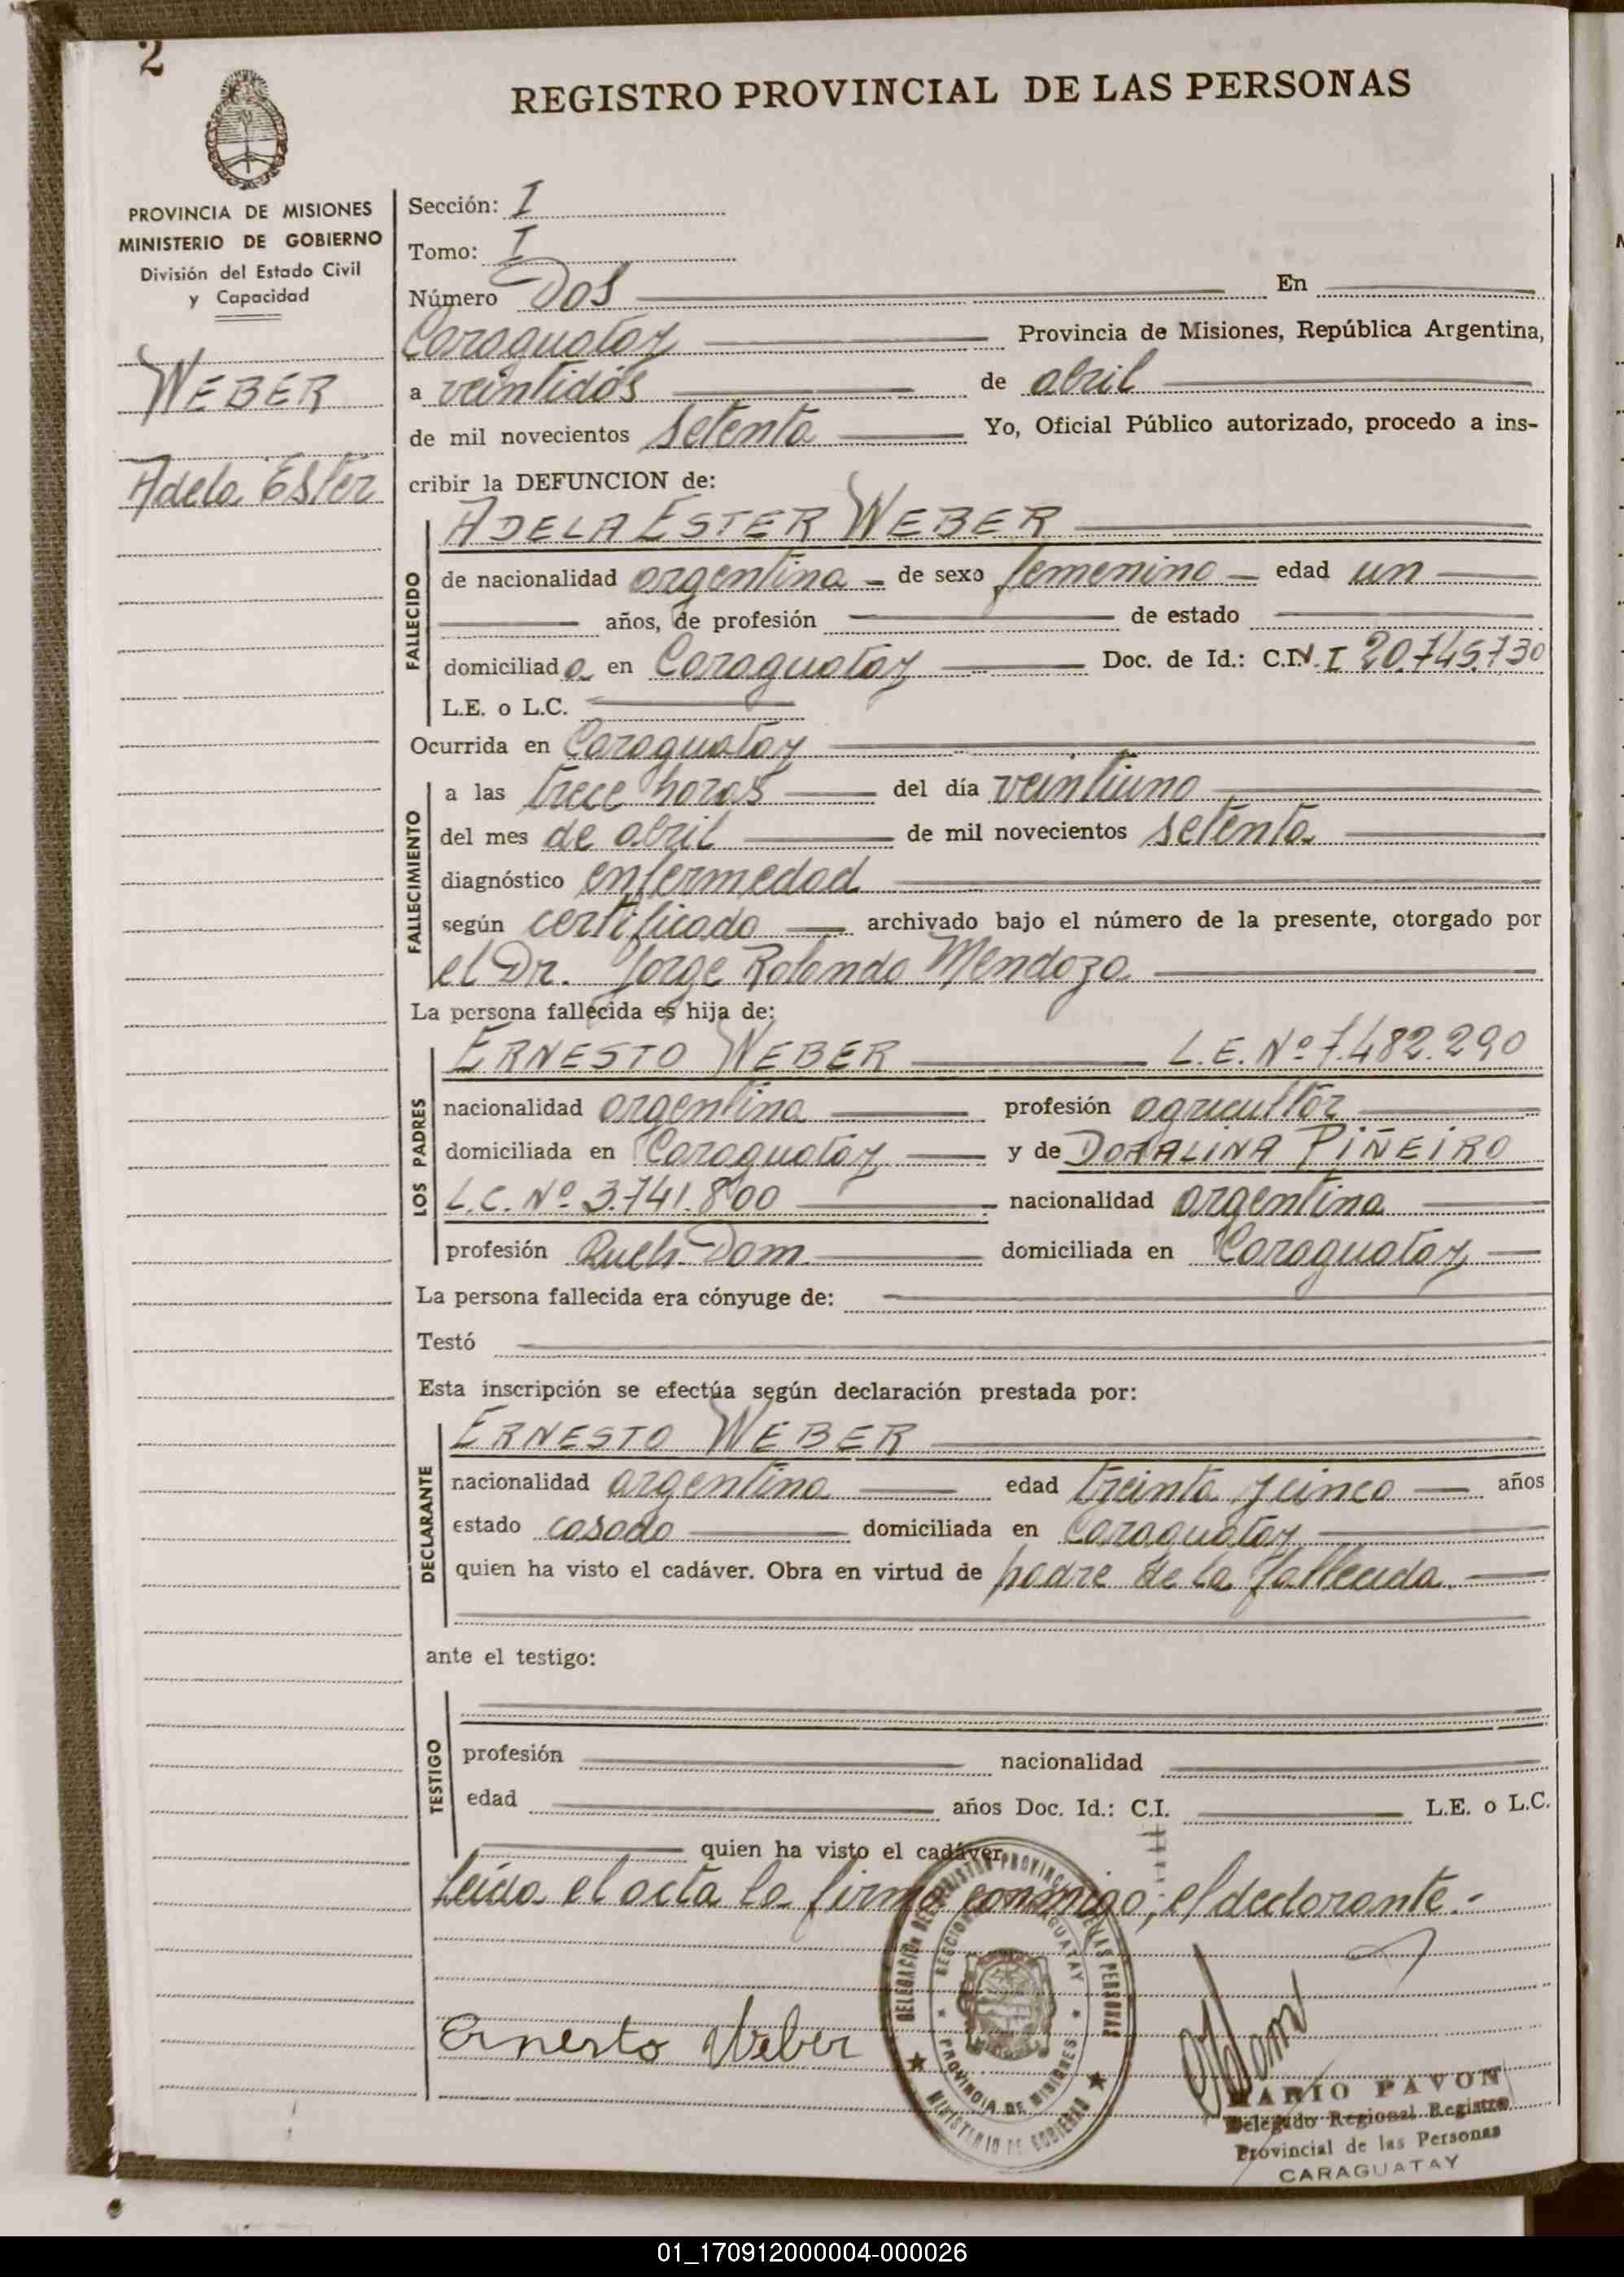 2
REGISTRO PROVINCIAL DE LAS PERSONAS
PROVINCIA DE MISIONES
MINISTERIO DE GOBIERNO
División del Estado Civil
y Capacidad
WEBER
Adela Ester
Sección: I
Tomo: I
Número Dos En
Caraguatay Provincia de Misiones, República Argentina,
a veintidós de abril
de mil novecientos setenta Yo, Oficial Público autorizado, procedo a ins-
cribir la DEFUNCION de:
ADELA ESTER WEBER
FALLECIDO
de nacionalidad argentina de sexo femenino edad un
años, de profesión de estado
domiciliada en Caraguatay Doc. de Id.: C.I. 20.745.730
L.E. o L.C.
Ocurrida en Caraguatay
FALLECIMIENTO
a las trece horas del día veintiuno
del mes de abril de mil novecientos setenta
diagnóstico enfermedad
según certificado archivado bajo el número de la presente, otorgado por
el Dr. Jorge Rolando Mendoza
La persona fallecida es hija de:
LOS PADRES
ERNESTO WEBER L.E. Nº 7.482.290
nacionalidad argentina profesión agricultor
domiciliada en Caraguatay y de DORALINA PIÑEIRO
L.C. Nº 3.741.800 nacionalidad argentina
profesión Queh. Dom. domiciliada en Caraguatay
La persona fallecida era cónyuge de:
Testó
Esta inscripción se efectúa según declaración prestada por:
DECLARANTE
ERNESTO WEBER
nacionalidad argentina edad treinta y cinco años
estado casado domiciliada en Caraguatay
quien ha visto el cadáver. Obra en virtud de padre de la fallecida.
ante el testigo:
TESTIGO
profesión nacionalidad
edad años Doc. Id.: C.I. L.E. o L.C.
quien ha visto el cadáver.
Leída el acta la firma conmigo, el declarante.-
DELEGACION DEL REGISTRO PROVINCIAL DE LAS PERSONAS
SECCION CARAGUATAY
PROVINCIA DE MISIONES
MINISTERIO DE GOBIERNO
Ernesto Weber
MARIO PAVON
Delegado Regional Registro
Provincial de las Personas
CARAGUATAY
01_170912000004-000026